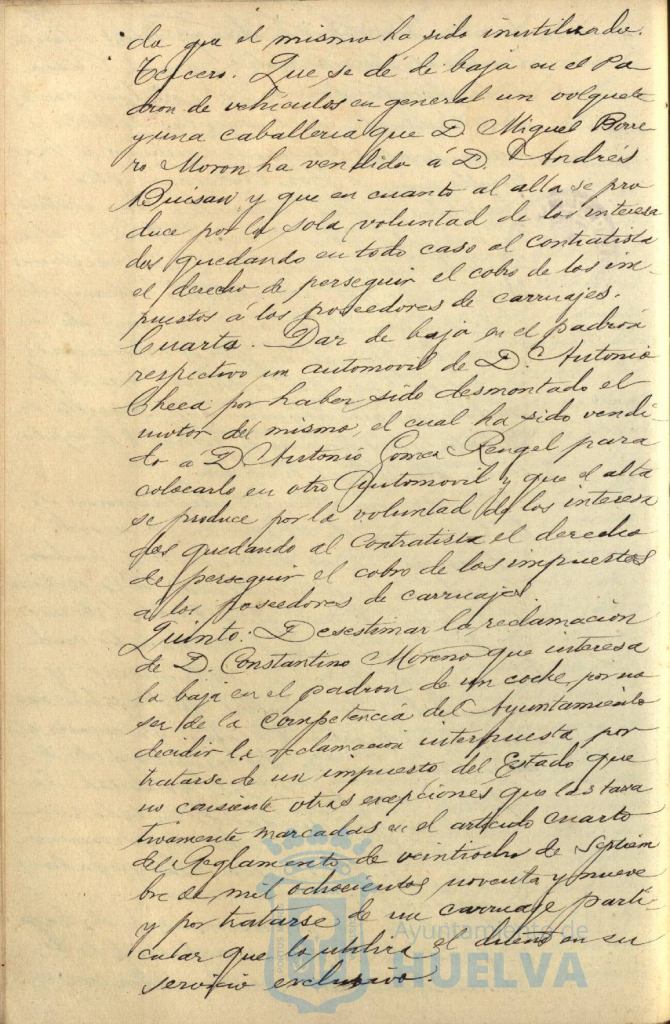 do que el mismo ha sido inutilizado.
Tercero. Que se dé de baja en el Pa
dron de vehiculos en general un volquete
y una caballeria que D. Miguel Borre
ro Moron ha vendido á D. Andrés
Buisan y que en cuanto al alta se pro
duce por la sola voluntad de los interesa
dos quedando en todo caso al contratista
el derecho de perseguir el cobro de los im-
puestos á los poseedores de carruajes.
Cuarto. Dar de baja en el padron
respectivo un automovil de D. Antonio
Checa por haber sido desmontado el
motor del mismo, el cual ha sido vendi-
do a D. Antonio Gomez Rengel para
colocarlo en otro Automovil y que el alta
se produce por la voluntad de los interesa
dos quedando al Contratista el derecho
de perseguir el cobro de los impuestos
a los poseedores de carruajes.
Quinto: Desestimar la reclamacion
de D. Constantino Moreno que interesa
la baja en el padron de un coche, por no
ser de la competencia del Ayuntamiento
decidir la reclamacion interpuesta por
tratarse de un impuesto del Estado que
no consiente otras excepciones que las taxa
tivamente marcadas en el articulo cuarto
del Reglamento de veintiocho de Septiem
bre de mil ochocientos noventa y nueve
y por tratarse de un carruaje parti-
cular que lo utiliza el dueño en su
servicio exclusivo.
Ayuntamiento de
HUELVA